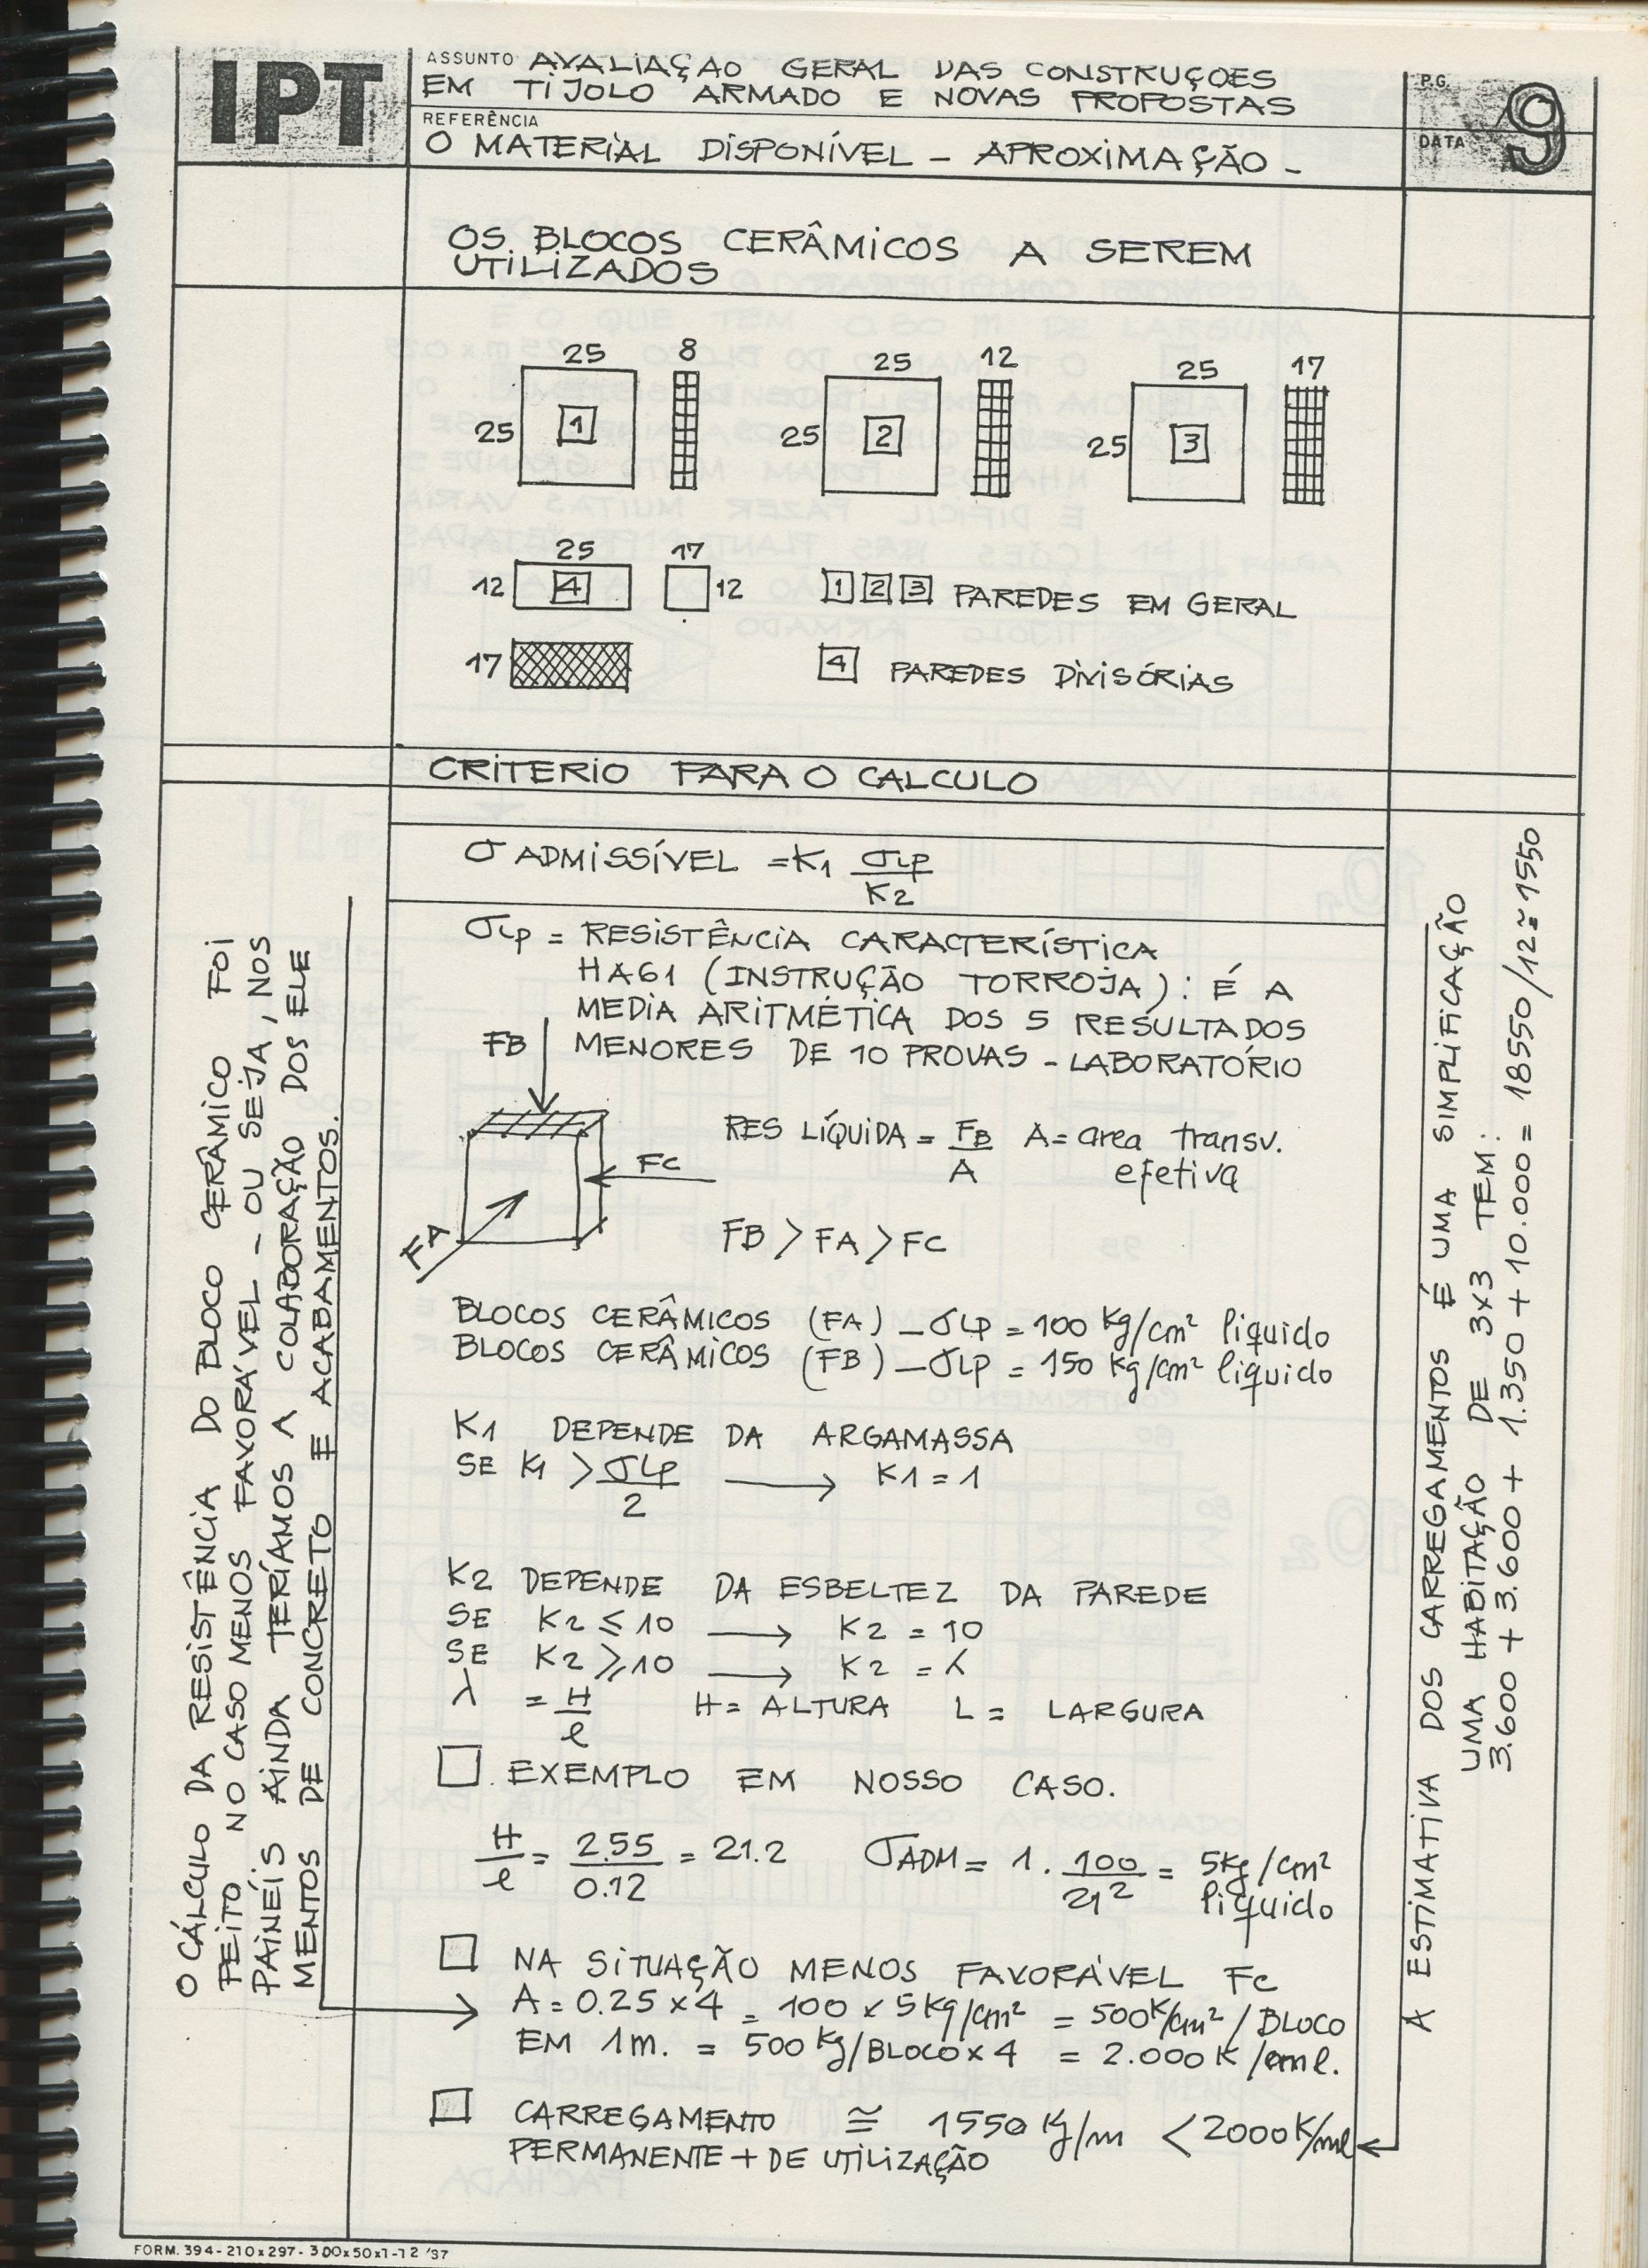 IPT
ASSUNTO AVALIAÇAO GERAL DAS CONSTRUÇOES
EM TIJOLO ARMADO E NOVAS PROPOSTAS
REFERÊNCIA
O MATERIAL DISPONÍVEL - APROXIMAÇÃO -
P.G.
DATA
9
OS BLOCOS CERÂMICOS A SEREM
UTILIZADOS
25 8 25 12 25 17
25 1 25 2 25 3
25 17
12 4 12 1 2 3 PAREDES EM GERAL
17 4 PAREDES DIVISÓRIAS
CRITERIO PARA O CALCULO
σ ADMISSÍVEL = K1 σLP
K2
σLP = RESISTÊNCIA CARACTERÍSTICA
HA61 (INSTRUÇÃO TORROJA): É A
MEDIA ARITMÉTICA DOS 5 RESULTADOS
FB MENORES DE 10 PROVAS - LABORATÓRIO
RES LÍQUIDA = FB A = area transv.
A efetiva
FC
FA
FB > FA > FC
BLOCOS CERÂMICOS (FA) - σLP = 100 Kg/cm² liquido
BLOCOS CERÂMICOS (FB) - σLP = 150 Kg/cm² liquido
K1 DEPENDE DA ARGAMASSA
SE K1 > σLP → K1 = 1
2
K2 DEPENDE DA ESBELTEZ DA PAREDE
SE K2 ≤ 10 → K2 = 10
SE K2 ≥ 10 → K2 = λ
λ = H H = ALTURA L = LARGURA
l
□ EXEMPLO EM NOSSO CASO.
H = 2.55 = 21.2 σADM = 1 . 100 = 5Kg/cm²
l 0.12 21² liquido
□ NA SITUAÇÃO MENOS FAVORÁVEL Fc
A = 0.25 x 4 = 100 x 5Kg/cm² = 500K/cm² / BLOCO
EM 1m. = 500 Kg/BLOCO x 4 = 2.000 K /eml.
□ CARREGAMENTO ≅ 1550 Kg/m < 2000K/ml
PERMANENTE + DE UTILIZAÇÃO
O CÁLCULO DA RESISTÊNCIA DO BLOCO CERÂMICO FOI
FEITO NO CASO MENOS FAVORÁVEL - OU SEJA, NOS
PAINÉIS AINDA TERÍAMOS A COLABORAÇÃO DOS ELE
MENTOS DE CONCRETO E ACABAMENTOS.
A ESTIMATIVA DOS CARREGAMENTOS É UMA SIMPLIFICAÇÃO
UMA HABITAÇÃO DE 3x3 TEM:
3.600 + 3.600 + 1.350 + 10.000 = 18550/12 ≅ 1550
FORM. 394-210x297-300x50x1-12'87